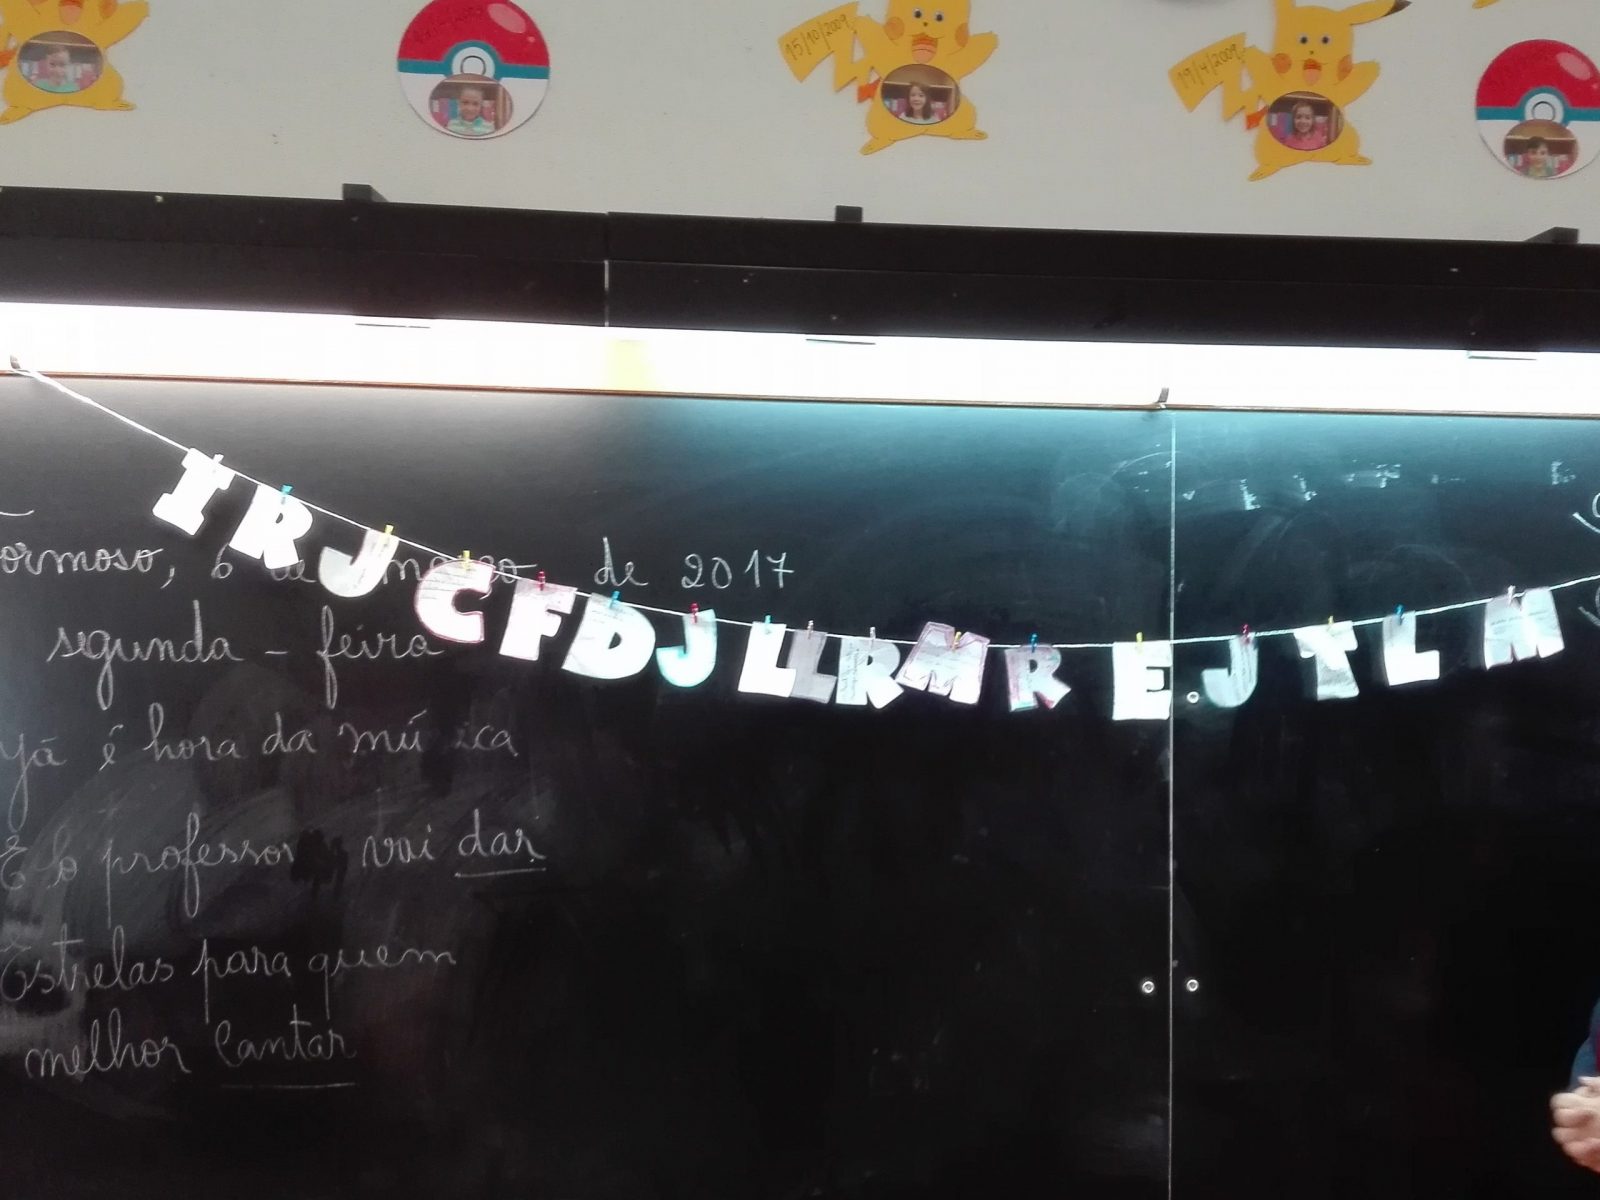 15/10/2009
19/4/2009
I R J C F D J L L R M R E J T L M
ormoso, 6 de março de 2017
segunda-feira
Já é hora da música
E o professor vai dar
Estrelas para quem
melhor cantar